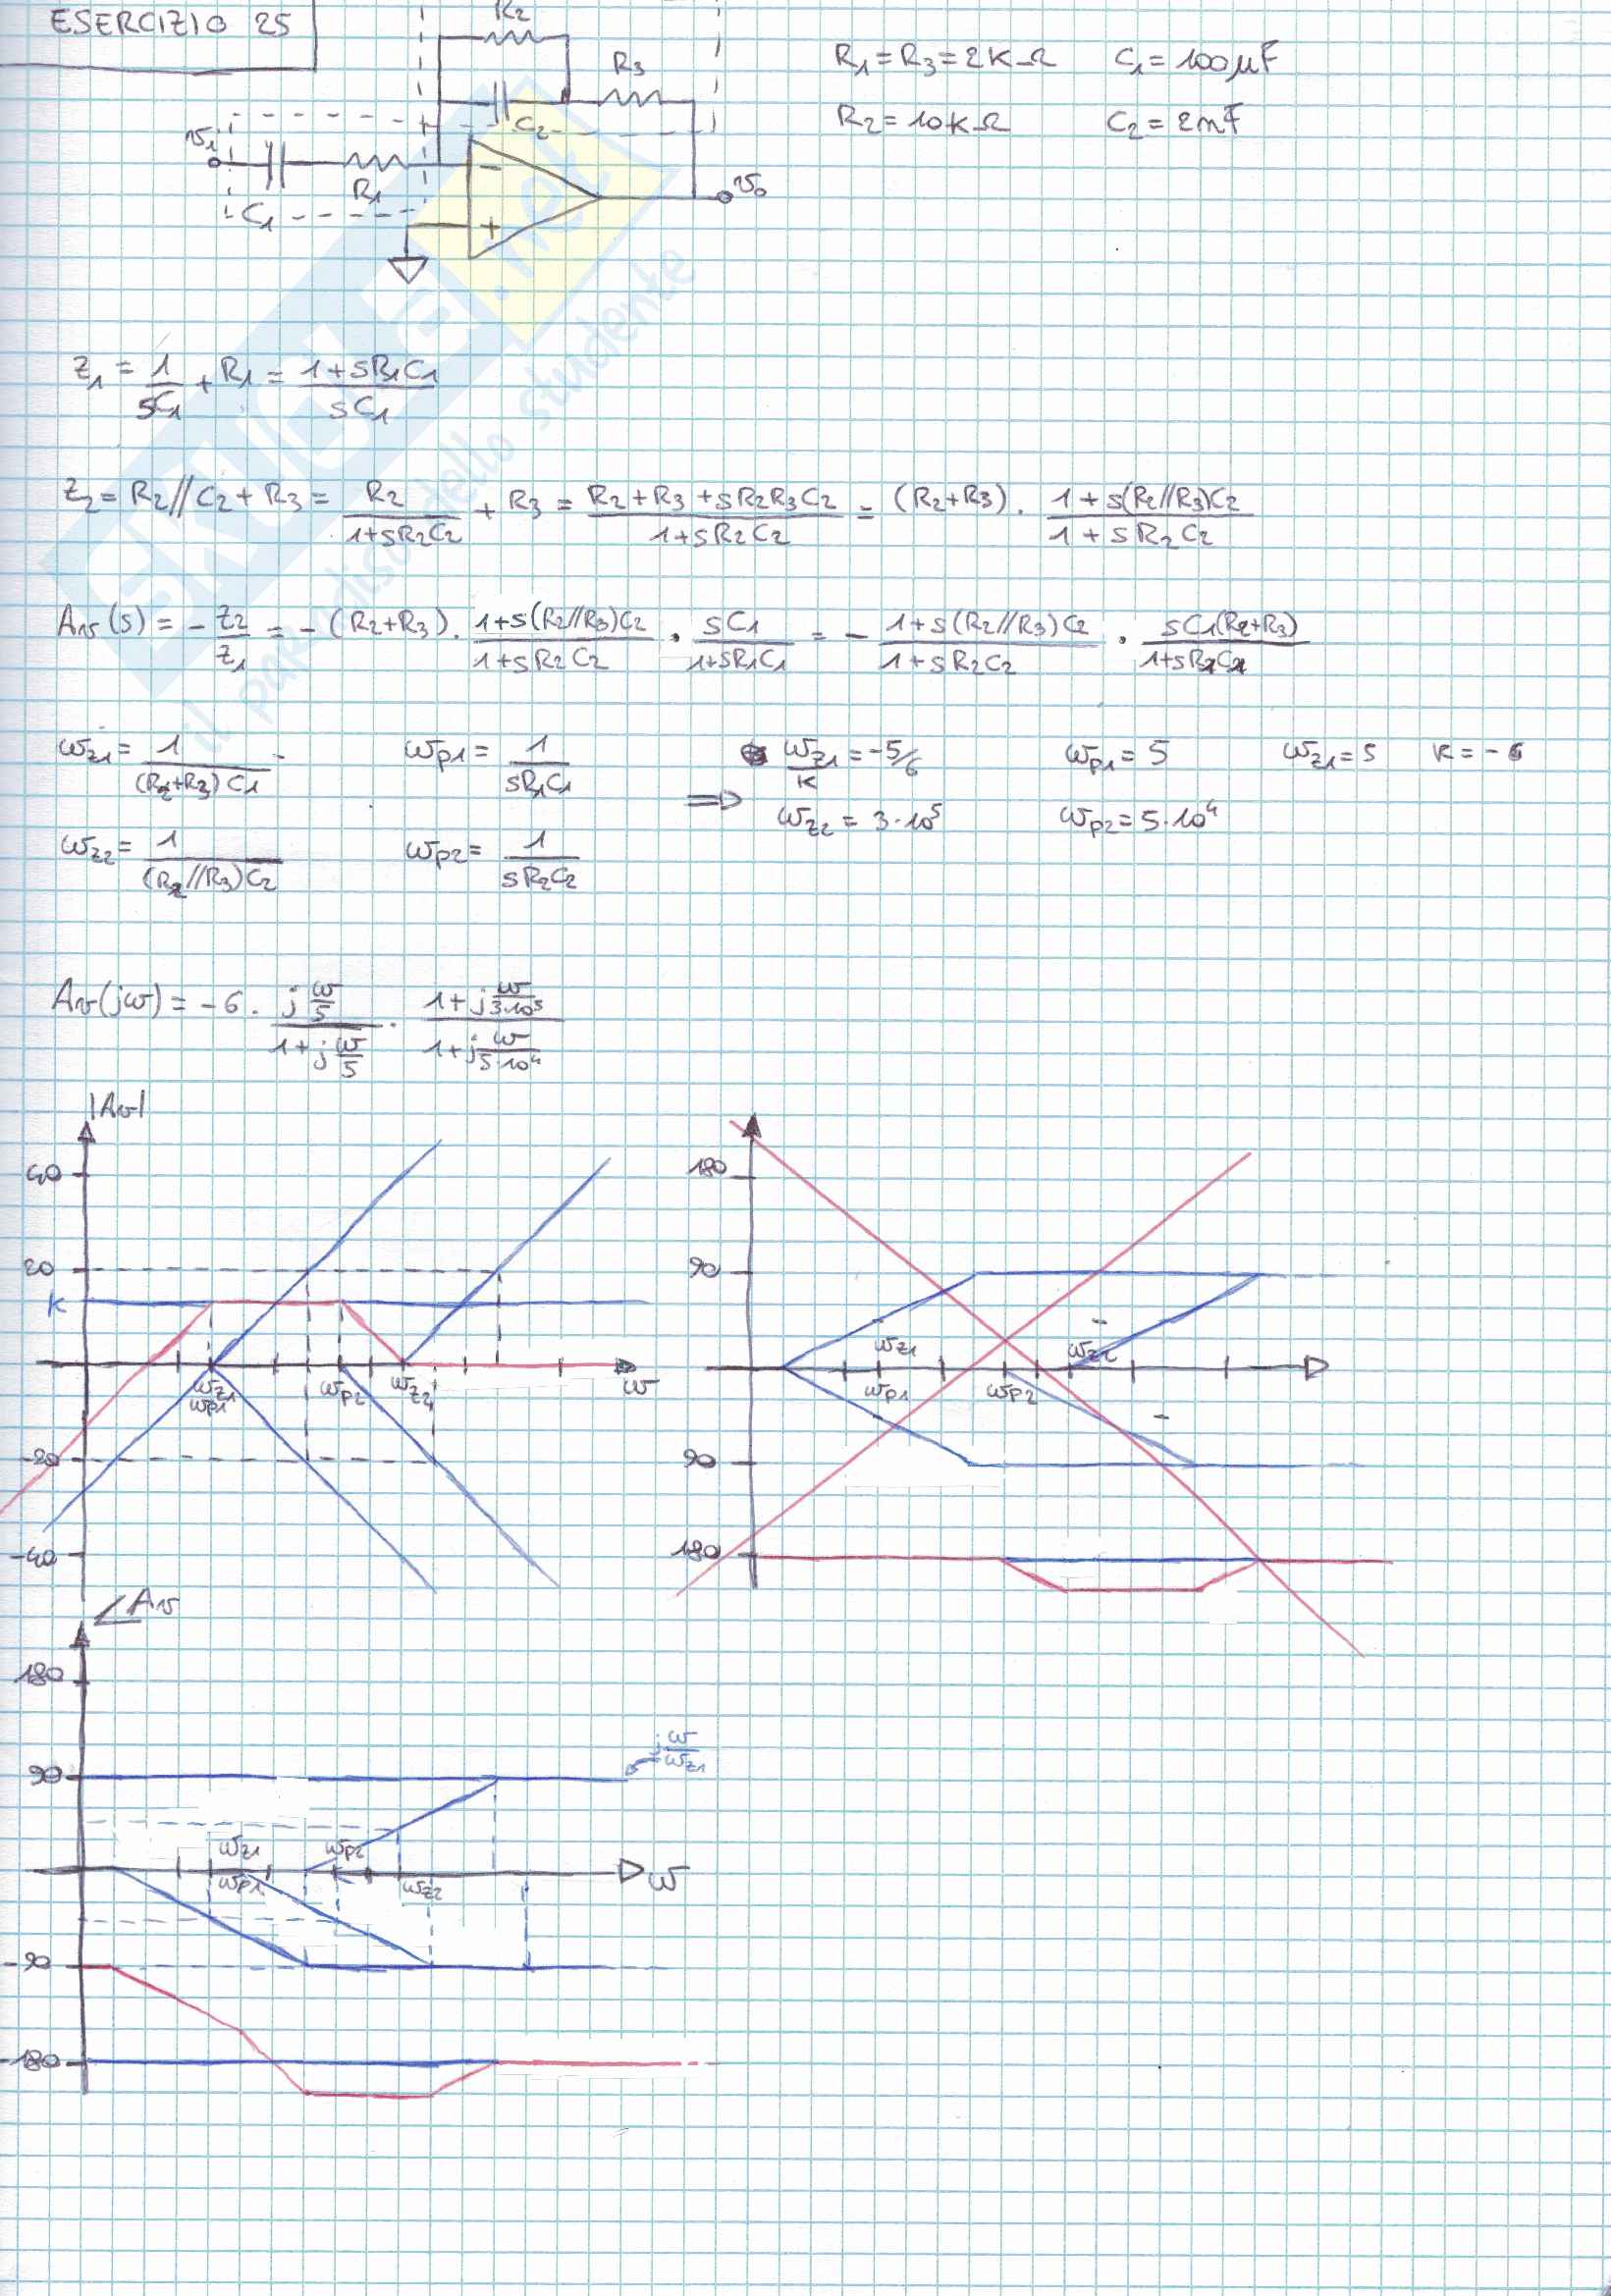 ESERCIZIO 25
R2
R3
C2
R1 = R3 = 2KΩ C1 = 100μF
R2 = 10KΩ C2 = 2nF
v1
C1
R1
-
+
vo
Z1 = 1/sC1 + R1 = (1+sR1C1)/sC1
Z2 = R2//C2 + R3 = R2/(1+sR2C2) + R3 = (R2+R3+sR2R3C2)/(1+sR2C2) = (R2+R3) · (1+s(R2//R3)C2)/(1+sR2C2)
Av(s) = - Z2/Z1 = - (R2+R3) · (1+s(R2//R3)C2)/(1+sR2C2) · sC1/(1+sR1C1) = - (1+s(R2//R3)C2)/(1+sR2C2) · sC1(R2+R3)/(1+sR1C1)
ωz1 = 1/((R2+R3)C1) ωp1 = 1/(sR1C1) ⇒ ωz1/K = -5/6 ωp1 = 5 ωz1 = 5 K = -6
ωz2 = 1/((R2//R3)C2) ωp2 = 1/(sR2C2) ωz2 = 3·10^5 ωp2 = 5·10^4
Av(jω) = -6 · (j ω/5)/(1+j ω/5) · (1+j ω/3·10^5)/(1+j ω/5·10^4)
|Av|
40
20
K
ωz1
ωp1
ωp2
ωz2
ω
-20
-40
180
90
ωz1
ωp1
ωp2
ωz2
90
180
∠Av
180
90
j ω/ωz1
ωz1
ωp1
ωp2
ωz2
ω
-90
-180
SKUOLA.net
il paradiso dello studente